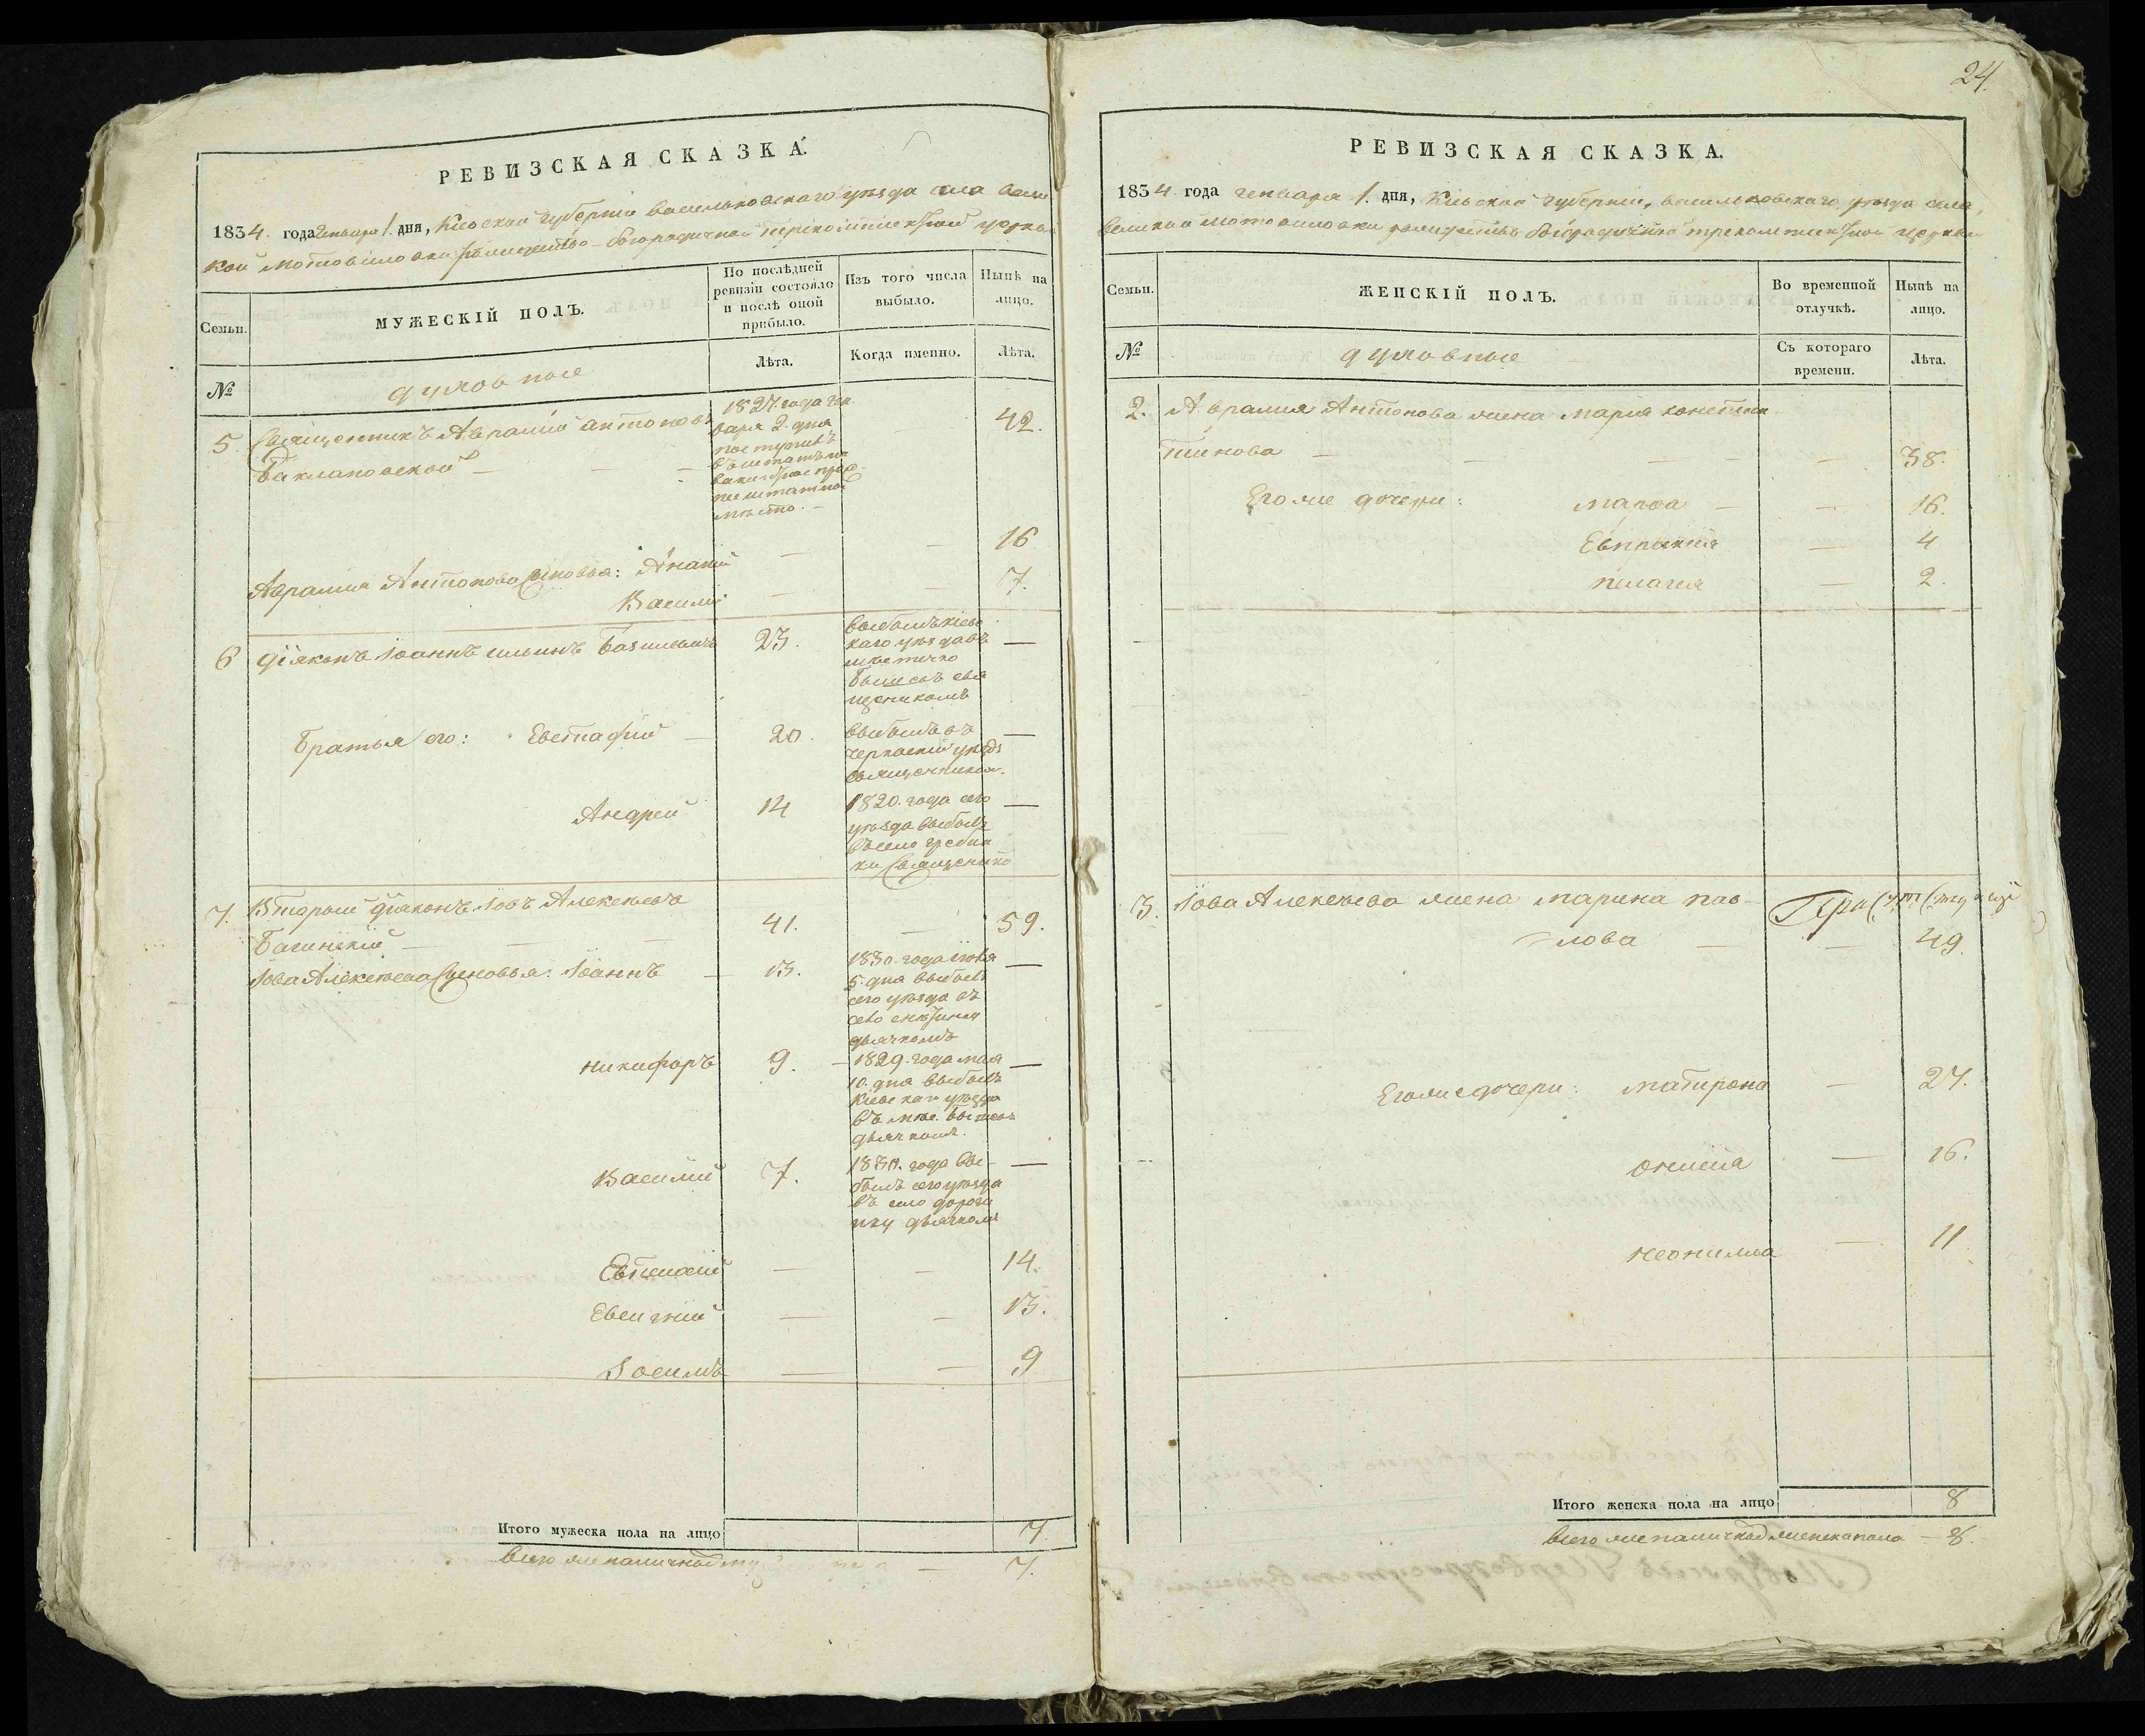 РЕВИЗСКАЯ СКАЗКА.
1834. года Генваря 1. дня, Кіевской Губерніи Васильковскаго уѣзда села Вели
кой Мотовиловки рождество-богородичной трехкомплектной церкви
Семьи.
МУЖЕСКІЙ ПОЛЪ.
По послѣдней ревизіи состояло и послѣ оной прибыло.
Изъ того числа выбыло.
Нынѣ на лицо.
№
духовные
Лѣта.
Когда именно.
Лѣта.
5 Священникъ Аврамій Антоновъ 42.
Баклановской
1827. года Ген
варя 2. дня
поступивъ
мѣсто.
Аврамія Антонова Сыновья: Ананій 16
Василій 7.
6 Діяконъ Іоаннъ Ильинъ Базилевичъ 23.
выбылъ Кіевс
каго уѣзда въ
мѣстечко
свя
щеникомъ
Братья его: Евстафій 20.
выбылъ въ
Черкаскій уѣздъ
священникъ.
Андрей 14
1820. года сего
уѣзда выбылъ
въ село Гребін
ки Священико
7. Вторый діяконъ Іовъ Алексѣевъ
Багинскій 41. 59.
Іова Алексѣева Сыновья: Іоаннъ 13.
1830. года Іюня
5. дня выбылъ
сего уѣзда въ
село
дьячкомъ
Никифоръ 9.
1829. года мая
10. дня выбылъ
Кіевскаго уѣзда
въ мѣс.
дьячкомъ.
Василій 7.
1830. года вы-
былъ сего уѣзда
въ село Дороги
нку дьячкомъ
14.
Евгеній 13.
9
Итого мужеска пола на лицо 7.
Всего же наличнаго 7.
24.
РЕВИЗСКАЯ СКАЗКА.
1834 года Генваря 1. дня, Кіевской Губерніи, Васильковскаго уѣзда села,
Великой Мотовиловки рождество Богородичной трехкомплектной церкви
Семьи.
ЖЕНСКІЙ ПОЛЪ.
Во временной отлучкѣ.
Нынѣ на лицо.
№
духовные
Съ котораго времени.
Лѣта.
2. Аврамія Антонова жена Марія Констан
тинова 38.
Его же дочери: Марѳа 16.
Евпраксія 4
Пелагея 2.
3. Іова Алексѣева жена Марина Пав-
лова 49.
Его же дочери: Матрона 27.
Онисія 16.
Неонилла 11
Итого женска пола на лицо 8
Всего же наличнаго женска пола 8.